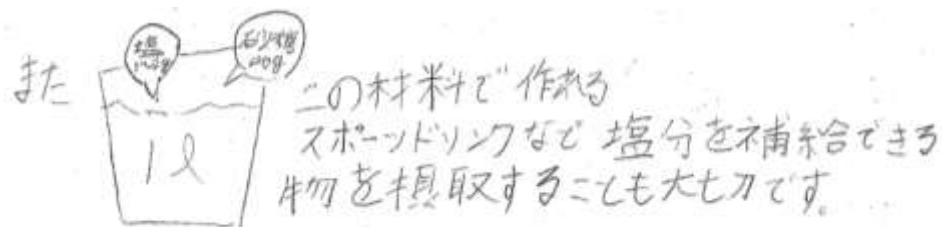 また
塩
砂糖
1ℓ
この材料で作れる
スポーツドリンクなど塩分を補給できる
物を摂取することも大切です。